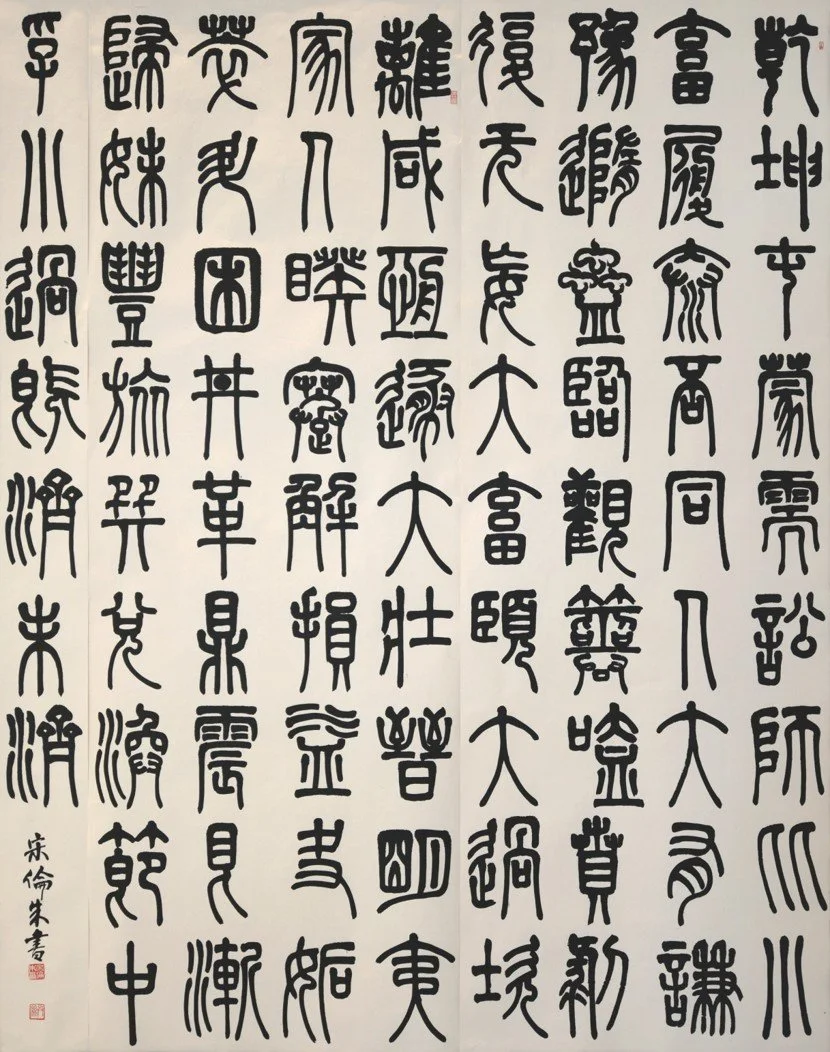 乾坤屯蒙需訟師比小
富履泰否同人大有謙
豫隨蠱臨觀簭嗑賁剝
復无妄大富頤大過坎
離咸恆遯大壯晉明夷
家人睽蹇解損益夬姤
萃升困井革鼎震艮漸
歸妹豐旅巽兌渙節中
孚小過既濟未濟
宋倫朱書